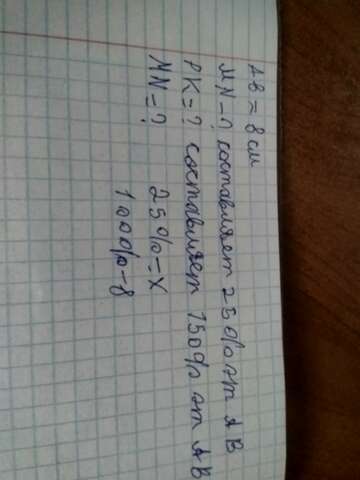 AB = 8 см
MN - ? составляет 25% от AB
PK = ? составляет 150% от AB
MN = ? 25% = x
100% - 8